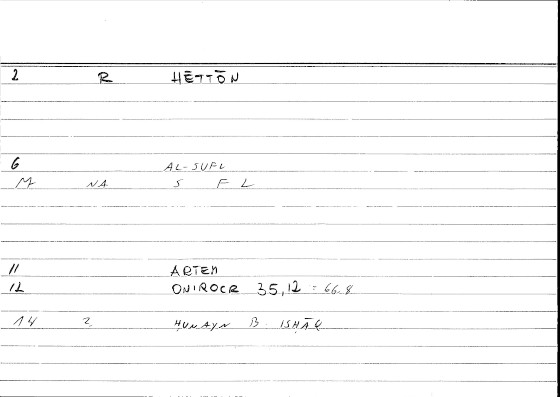 2 R HĒTTŌN
6 AL-SUFL
M NA S F L
11 ARTEM
12 ONIROCR 35,12 = 66.8
14 2 ḤUNAYN B. ISḤĀQ